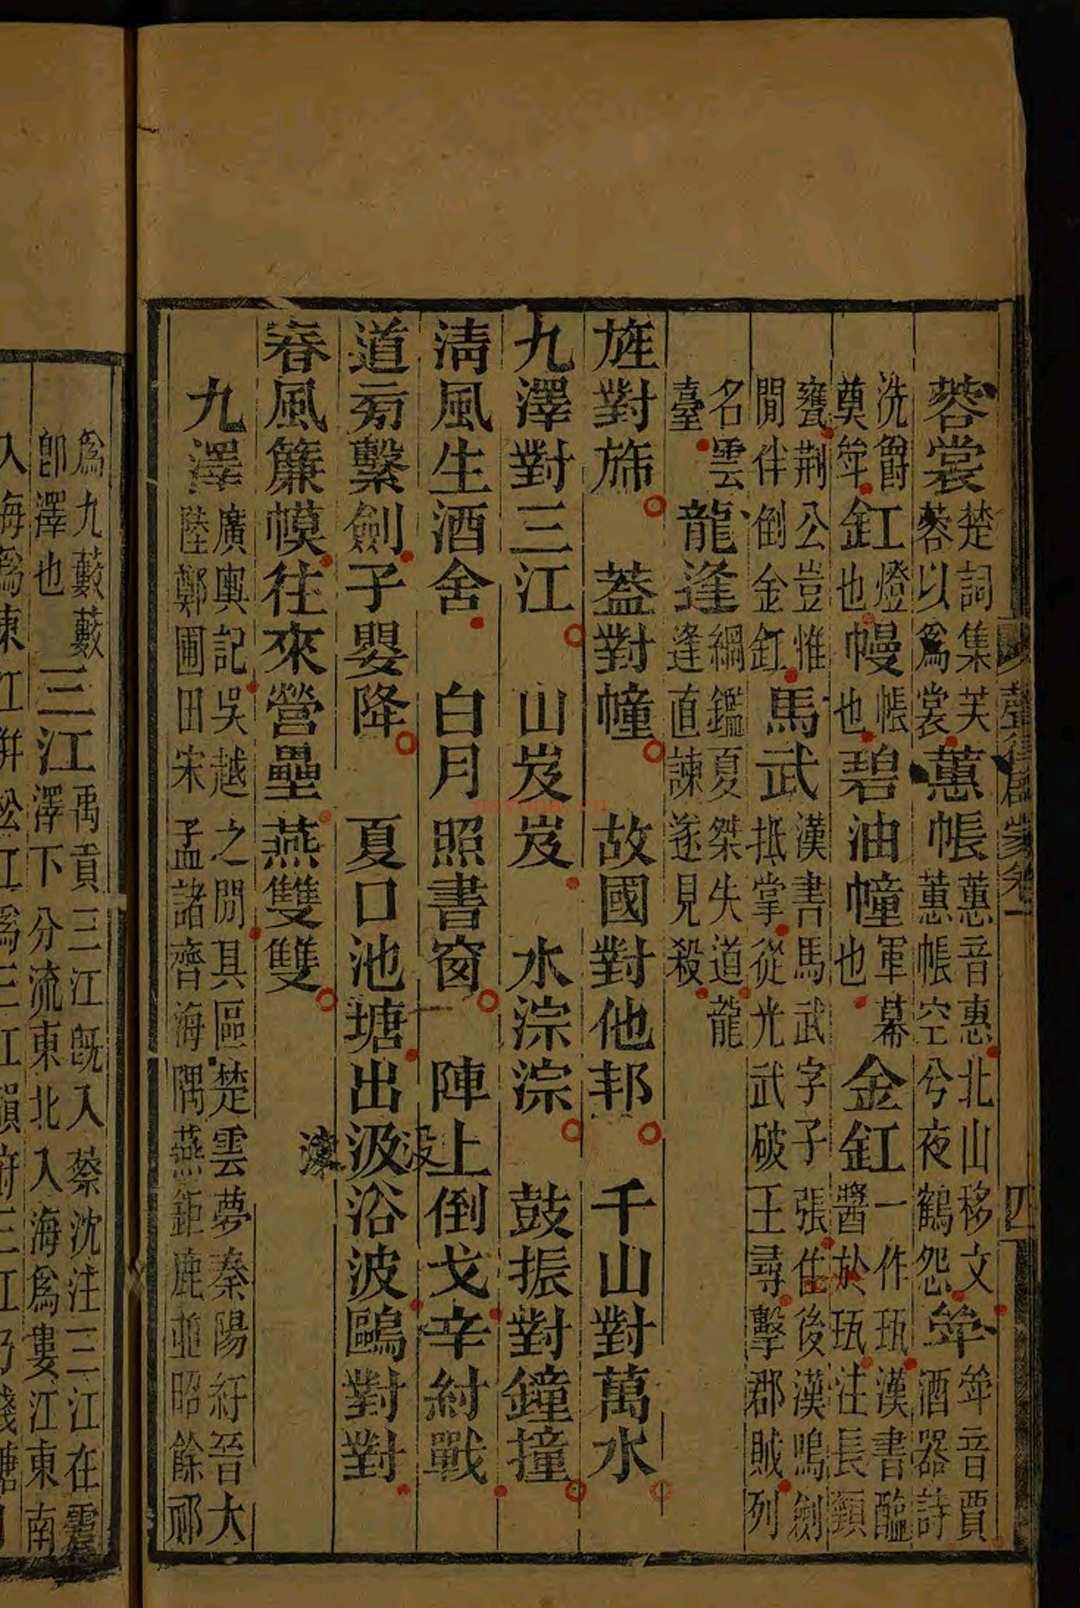 聲律啟蒙卷一 四
蓉裳 楚詞集芙
蓉以爲裳 蕙帳 蕙音惠北山移文
蕙帳空兮夜鶴怨 斚 斚音賈
酒器詩
洗爵
奠斚 釭 燈
也 幔 帳
也 碧油幢 軍幕
也 金釭 一作瓨漢書醯
醬於瓨注長頸
甕荆公豈惟
閒伴倒金釭 馬武 漢書馬武字子張住後漢鳴劍
抵掌從光武破王尋擊郡賊列
名雲
臺 龍逢 綱鑑夏桀失道龍
逢直諫遂見殺
旌對斾 蓋對幢 故國對他邦 千山對萬水
九澤對三江 山岌岌 水淙淙 鼓振對鐘撞
清風生酒舍 白月照書窗 陣上倒戈辛紂戰
没
道旁繫劍子嬰降 夏口池塘出汲浴波鷗對對
春風簾幙往來營壘燕雙雙
九澤 廣輿記吳越之間具區楚雲夢秦陽紆晉大
陸鄭圃田宋孟諸齊海隅燕鉅鹿並昭餘祁
爲九藪藪
卽澤也 三江 禹貢三江旣入蔡沈注三江在震
澤下分流東北入海爲婁江東南
入海爲東江併松江爲三江韻府三江乃錢塘
nayona.cn